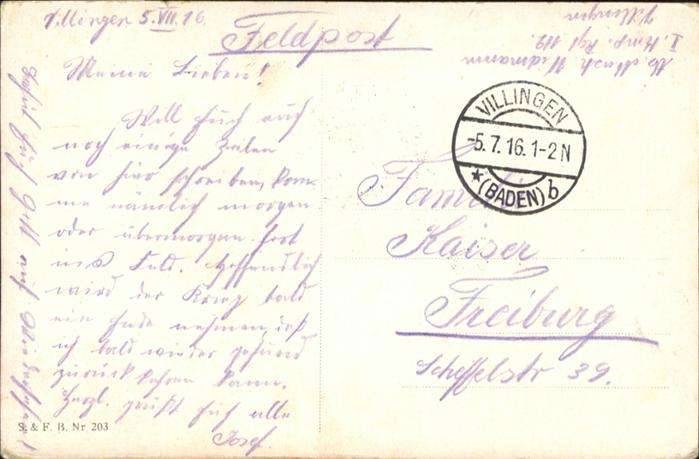 Villingen 5.VII.16.
Feldpost
Meine Lieben!
Will Euch auch
noch einige Zeilen
von hier schreiben, kom-
me nämlich morgen
oder übermorgen fort
ins Feld. Hoffentlich
wird der Krieg bald
ein Ende nehmen, daß
ich bald wieder gesund
zurück kehren kann.
Herzl. grüßt Euch alle
Josef.
Behüt Euch Gott auf
S. & F. B. Nr 203
Abs.
I. Komp. Rgt
Villingen
VILLINGEN
-5.7.16.1-2N
*(BADEN) b
Familie
Kaiser
Freiburg
Scheffelstr 39.